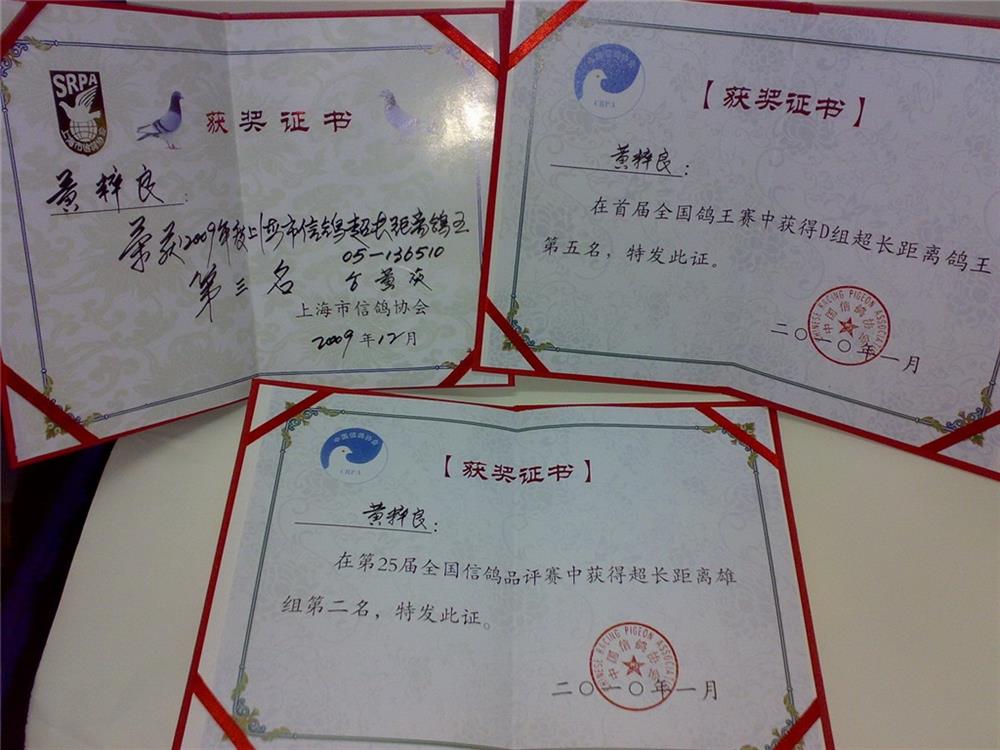 SRPA
上海市信鸽协会
获奖证书
黄梓良：
荣获2009年度上海市信鸽超长距离鸽王
05-136510
第三名
上海市信鸽协会
2009年12月
中国信鸽协会
CRPA
【获奖证书】
黄梓良：
在首届全国鸽王赛中获得D组超长距离鸽王
第五名，特发此证。
CHINESE RACING PIGEON ASSOCIATION
中国信鸽协会
二〇一〇年一月
中国信鸽协会
CRPA
【获奖证书】
黄梓良：
在第25届全国信鸽品评赛中获得超长距离雄
组第二名，特发此证。
CHINESE RACING PIGEON ASSOCIATION
中国信鸽协会
二〇一〇年一月